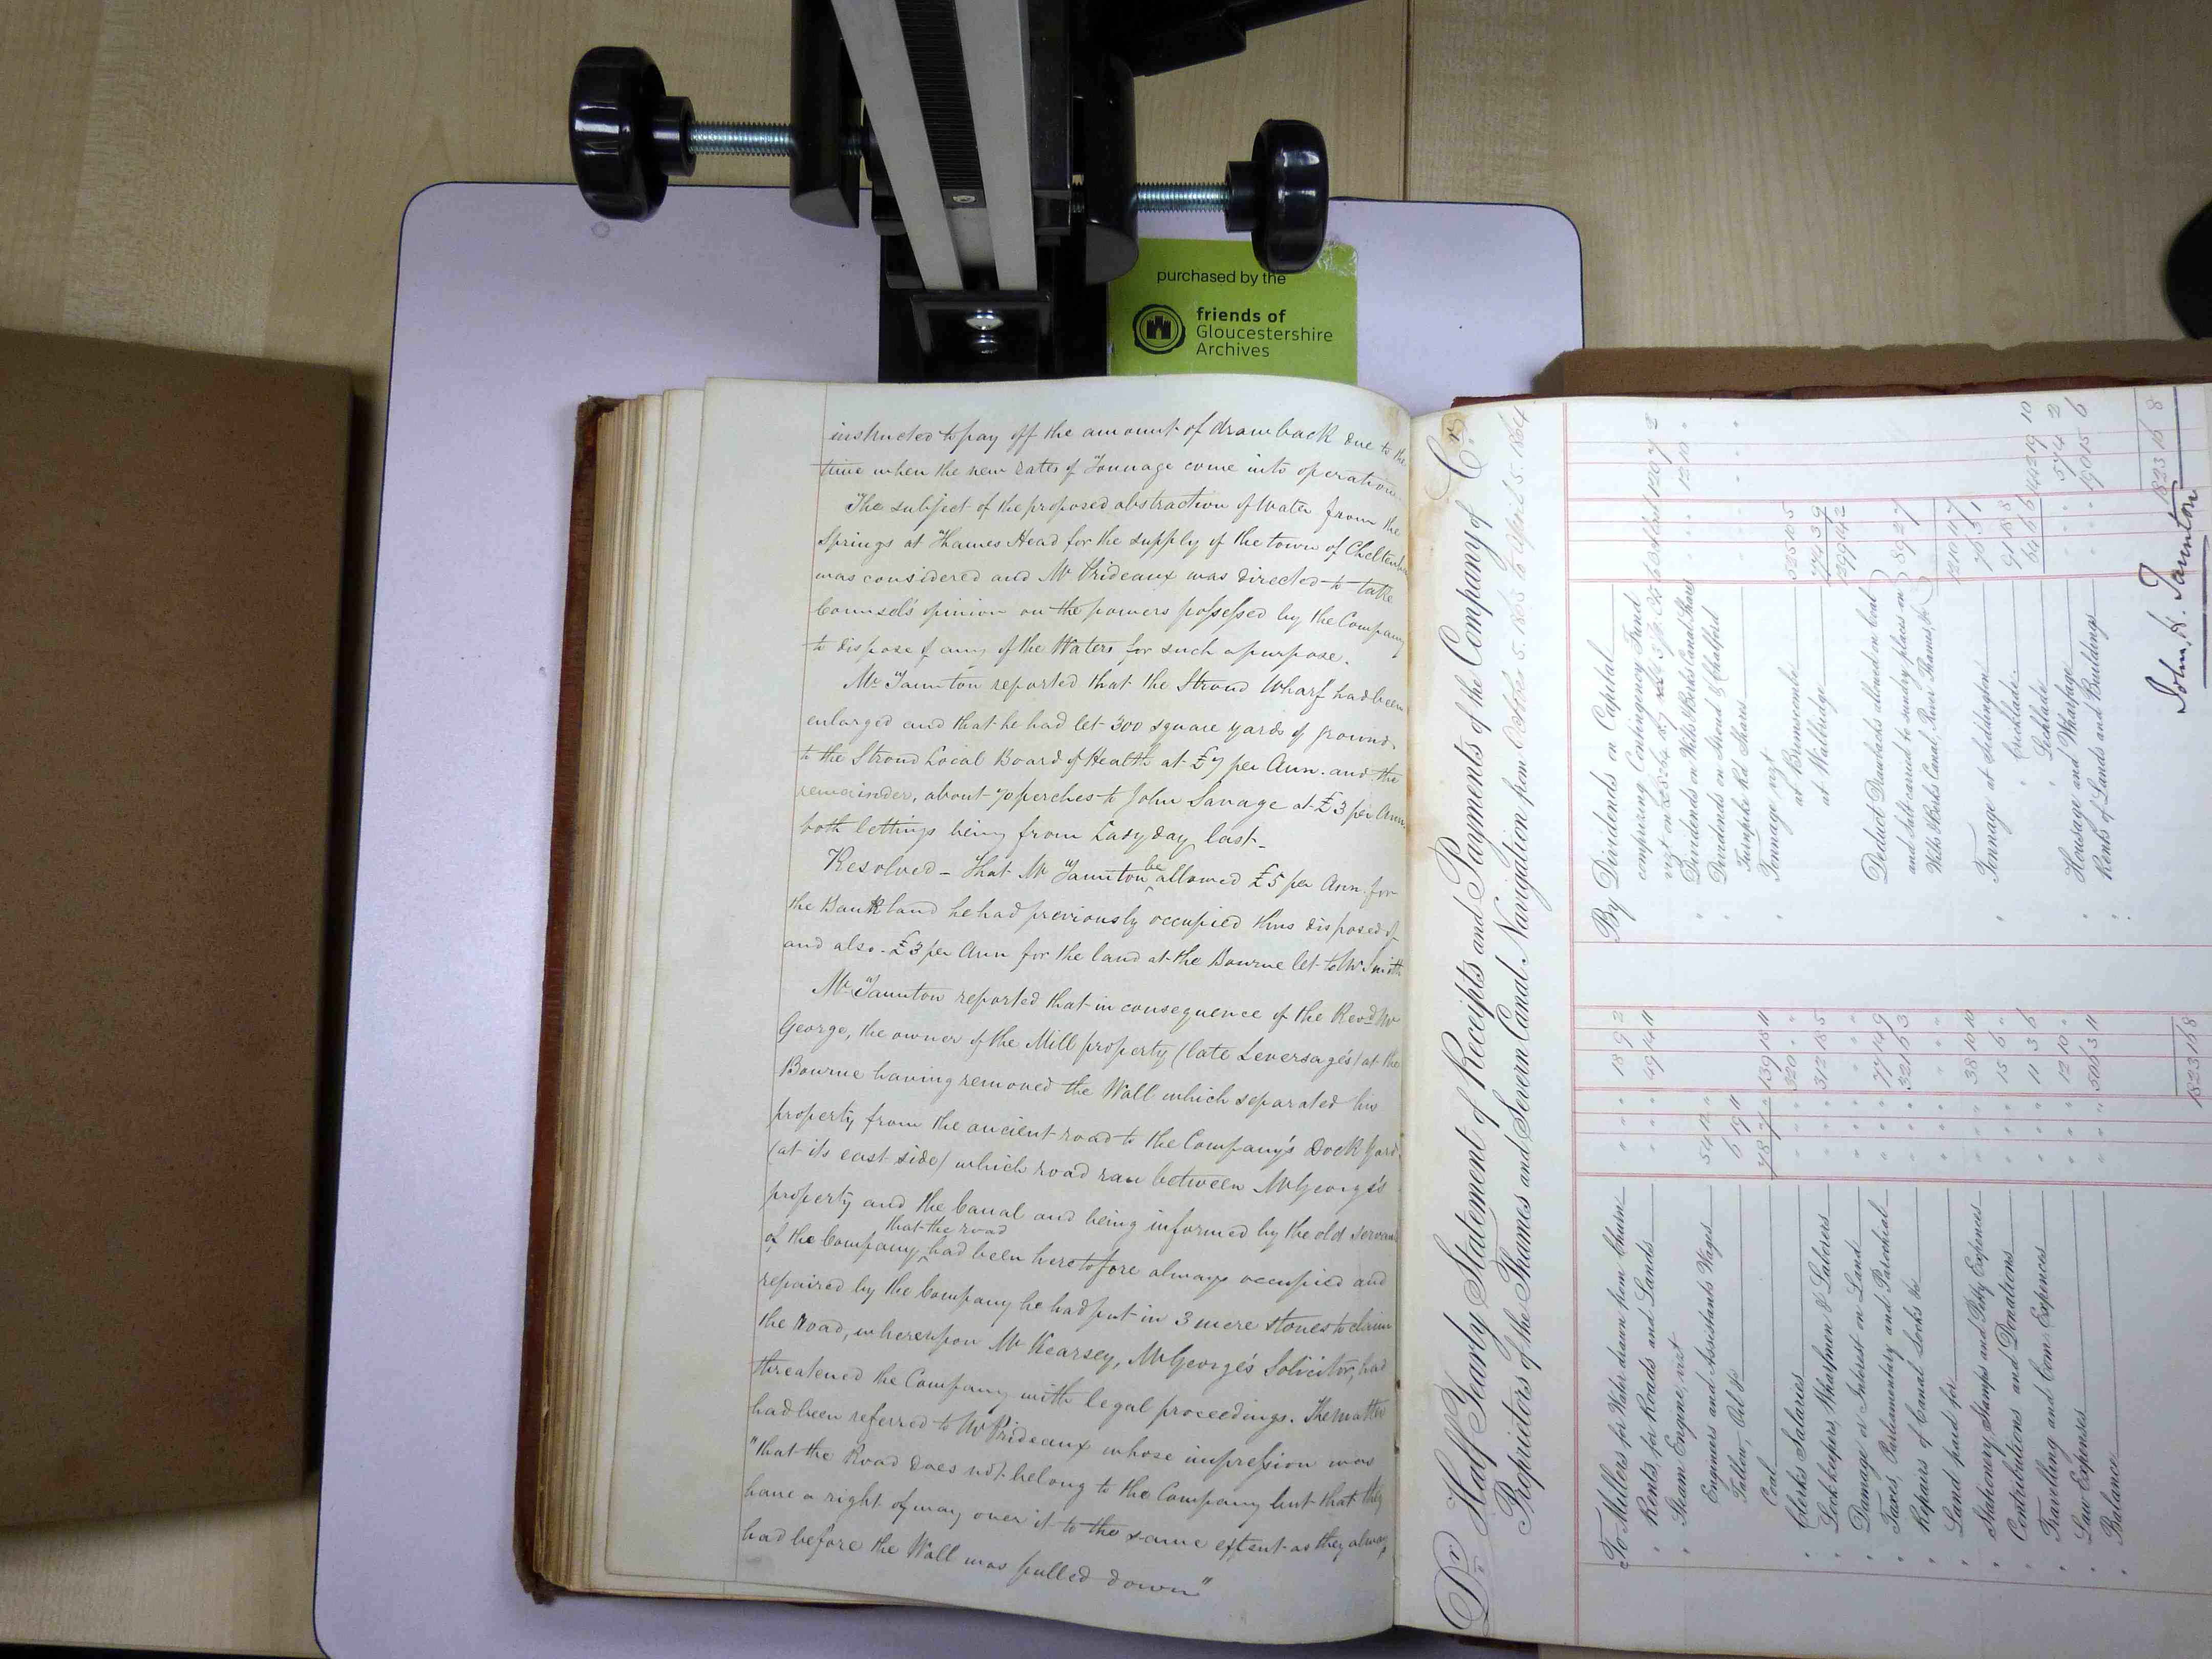 purchased by the
friends of
Gloucestershire
Archives
instructed to pay off the amount of drawback due to the
time when the new rates of Tonnage come into operation.
The subject of the proposed abstraction of Water from the
Springs at Thames Head for the supply of the town of Cheltenham
was considered and Mr Prideaux was directed to take
Counsel's opinion on the powers possessed by the Company
to dispose of any of the Waters for such a purpose.
Mr Taunton reported that the Stroud Wharf had been
enlarged and that he had let 300 square yards of ground
to the Stroud Local Board of Health at £7 per Ann. and the
remainder, about 70 perches to John Savage at £3 per Ann.
both lettings being from Lady day last.
Resolved – That Mr Taunton be allowed £5 per Ann. for
the Bank land he had previously occupied thus disposed of
and also £3 per Ann for the land at the Bourne let to Mr Smith
Mr Taunton reported that in consequence of the Revd Mr
George, the owner of the Mill property (late Leversage's) at the
Bourne having removed the Wall which separated his
property from the ancient road to the Company's Dock Yard
(at its east side) which road ran between Mr George's
property and the Canal and being informed by the old servants
of the Company that the road had been heretofore always occupied and
repaired by the Company he had put in 3 mere stones to claim
the Road, whereupon Mr Kearsey, Mr George's Solicitor, had
threatened the Company with legal proceedings. The matter
had been referred to Mr Prideaux whose impression was
"that the Road does not belong to the Company but that they
have a right of way over it to the same extent as they always
had before the Wall was pulled down"
Dr Half Yearly Statement of Receipts and Payments of the Company of Cr
Proprietors of the Thames and Severn Canal Navigation from October 5. 1863 to April 5. 1864
To Millers for Water drawn from Churn " " " 18 9 2
" Rents for Roads and Lands " " " 49 14 11
" Steam Engine, vizt
Engineers and Assistants Wages 54 12 "
Tallow, Oil &c 6 19 11
Coal 78 7 " 139 18 11
" Clerks Salaries " " " 320 " "
" Lockkeepers, Wharfmen & Laborers " " " 312 18 5
" Damage or Interest on Land " " " " " "
" Taxes, Parliamentary and Parochial " " " 77 14 9
" Repairs of Canal Locks &c " " " 321 5 3
" Land paid for " " " " " "
" Stationery, Stamps and Petty Expences " " " 38 10 10
" Contributions and Donations " " " 15 5 "
" Travelling and Com: Expences " " " 11 3 6
" Law Expenses " " " 12 10 "
" Balance " " " 506 3 11
1823 18 8
By Dividends on Capital
comprising Contingency Fund
" Dividends on Wilts & Berks Canal Shares " " " 12 10 "
" Dividends on Stroud & Chalford
Turnpike Rd Shares " " "
" Tonnage vizt
at Brimscombe 525 10 5
at Wallbridge 774 3 9
1299 14 2
Deduct Drawbacks allowed on Coal
and Salt carried to sundry places on
Wilts & Berks Canal, River Thames, &c 89 2 7
1210 11 7
" Tonnage at Siddington
" Cricklade
" Lechlade
" Housage and Wharfage
" Rents of Lands and Buildings
1823 18 8
John H. Taunton